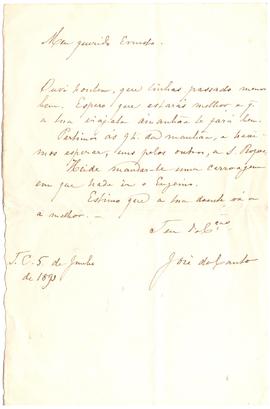 Meu querido Ernesto.
Ouvi hontem, que tinhas passado menos
bem. Espero que estarás melhor e q.
a tua viajata amanhã te fará bem.
Partimos ás 7 h. da manhãa, e havemos
esperar, uns pelos outros, a S. Roque
Heide mandar-te uma carroagem
em que hade ir o Eugenio.
Estimo que a tua doente vá a
a melhor. —
Teu do C.
José do Canto
S. C. 5 de Junho
de 1893